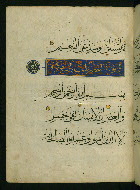 لتسئلن يومئذ عن النعيم
بسم الله الرحمن الرحيم
والعصر إن الإنسان لفي خسر
إلا الذين آمنوا وعملوا الصالحات